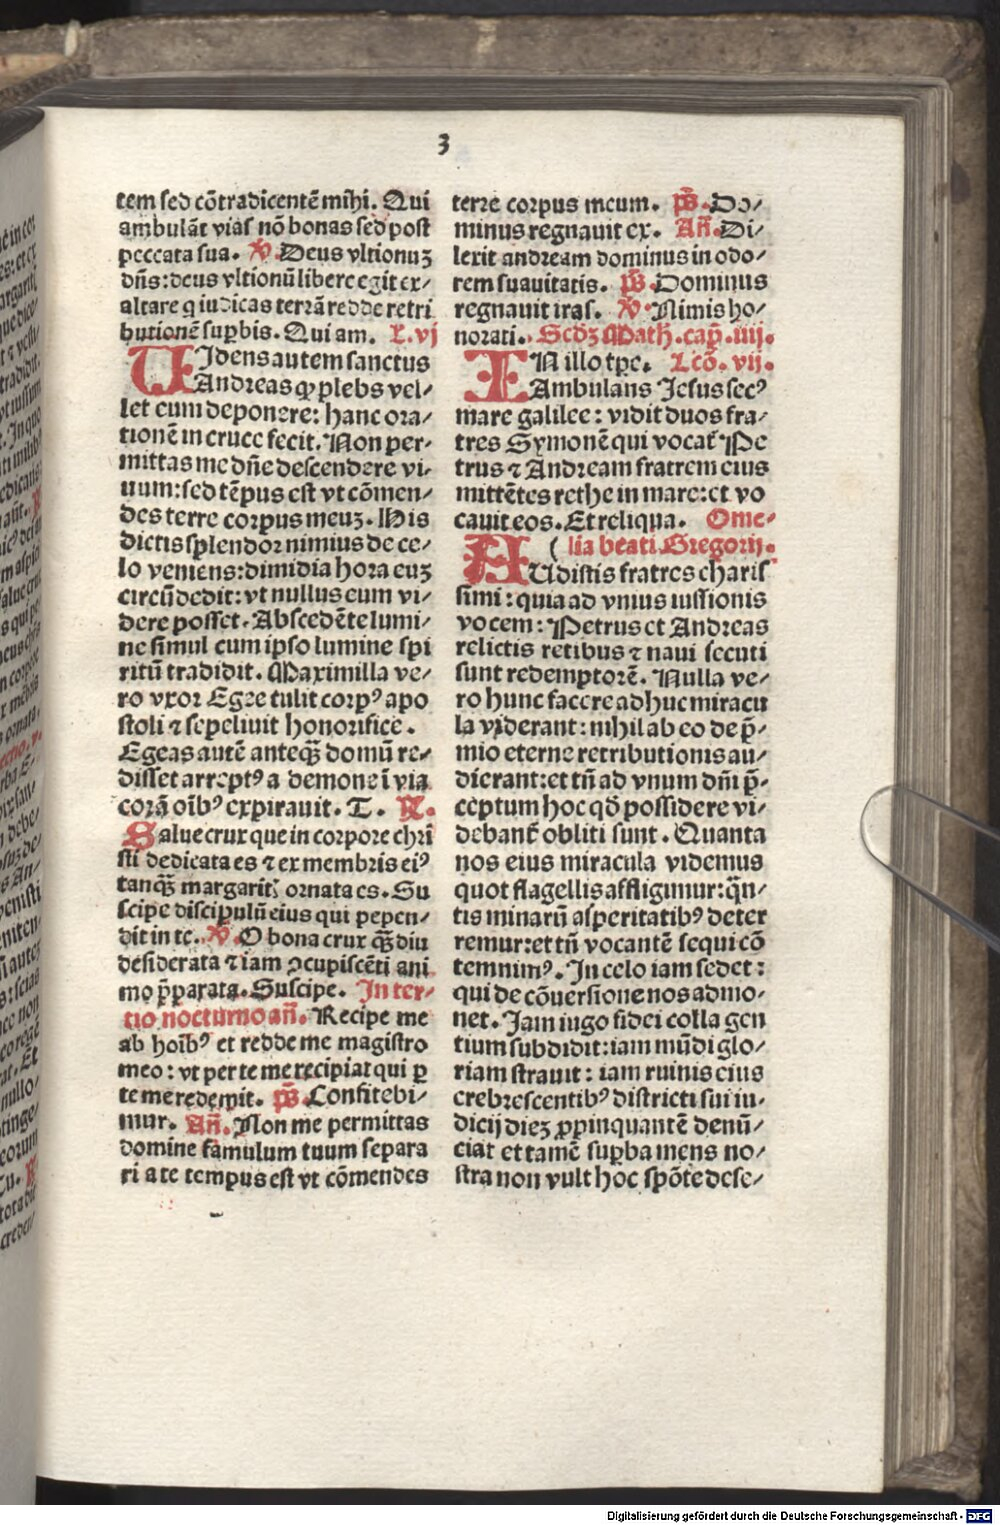 3
tem sed cõtradicentẽ mihi. Qui
ambulãt vias nõ bonas sed post
peccata sua. ℣. Deus vltionuꝫ
dñs: deus vltionũ libere egit ex⸗
altare q iudicas terrã redde retri
butionẽ suꝑbis. Qui am. L. vj
UIdens autem sanctus
Andreas ꝙ plebs vel⸗
let eum deponere: hanc ora⸗
tionẽ in cruce fecit. Non per⸗
mittas me dñe descendere vi⸗
uum: sed tẽpus est vt cõmen⸗
des terre corpus meuꝫ. His
dictis splendor nimius de ce⸗
lo veniens: dimidia hora euꝫ
circũdedit: vt nullus eum vi⸗
dere posset. Abscedẽte lumi⸗
ne simul cum ipso lumine spi
ritũ tradidit. Maximilla ve⸗
ro vxor Egee tulit corpꝰ apo
stoli ⁊ sepeliuit honorifice.
Egeas autẽ anteqꝫ̃ domũ re⸗
disset arreptꝰ a demone ĩ via
corã oĩbꝰ expirauit. T. ℞.
Salue crux que in corpore chri
sti dedicata es ⁊ ex membris eiꝰ
tanqꝫ̃ margaritꝭ ornata es. Su
scipe discipulũ eius qui pepen⸗
dit in te. ℣. O bona crux qꝫ̃ diu
desiderata ⁊ iam ꝯcupiscẽti ani
mo p̃parata. Suscipe. In ter⸗
tio nocturno añ. Recipe me
ab hoĩbꝰ et redde me magistro
meo: vt per te me recipiat qui ꝑ
te me redemit. p̃s. Confitebi⸗
mur. Añ. Non me permittas
domine famulum tuum separa
ri a te tempus est vt cõmendes
terre corpus meum. p̃s. Do⸗
minus regnauit ex. Añ. Di⸗
lexit andream dominus in odo⸗
rem suauitatis. p̃s. Dominus
regnauit iras. ℣. Nimis ho⸗
norati. Scdꝫ Math. cap̃. iiij.
IN illo tp̃e. Lcõ. vij.
Ambulans Jesus secꝰ
mare galilee: vidit duos fra⸗
tres Symonẽ qui vocat̃ Pe
trus ⁊ Andream fratrem eius
mittẽtes rethe in mare: et vo
cauit eos. Et reliqua. Ome⸗
( lia beati Gregorij.
AUdistis fratres charis
simi: quia ad vnius iussionis
vocem: Petrus et Andreas
relictis retibus ⁊ naui secuti
sunt redemptorẽ. Nulla ve⸗
ro hunc facere adhuc miracu
la viderant: nihil ab eo de p̃⸗
mio eterne retributionis au⸗
dierant: et tñ ad vnum dñi p̃⸗
ceptum hoc qd̃ possidere vi⸗
debant̃ obliti sunt. Quanta
nos eius miracula videmus
quot flagellis affligimur: q̃n⸗
tis minarũ asperitatibꝰ deter
remur: et tñ vocantẽ sequi cõ
temnimꝰ. In celo iam sedet:
qui de cõuersione nos admo⸗
net. Jam iugo fidei colla gen
tium subdidit: iam mũdi glo⸗
riam strauit: iam ruinis eius
crebrescentibꝰ districti sui iu⸗
dicij dieꝫ ꝓpinquantẽ denũ⸗
ciat et tamẽ suꝑba mens no⸗
stra non vult hoc spõte dese⸗
Digitalisierung gefördert durch die Deutsche Forschungsgemeinschaft - DFG